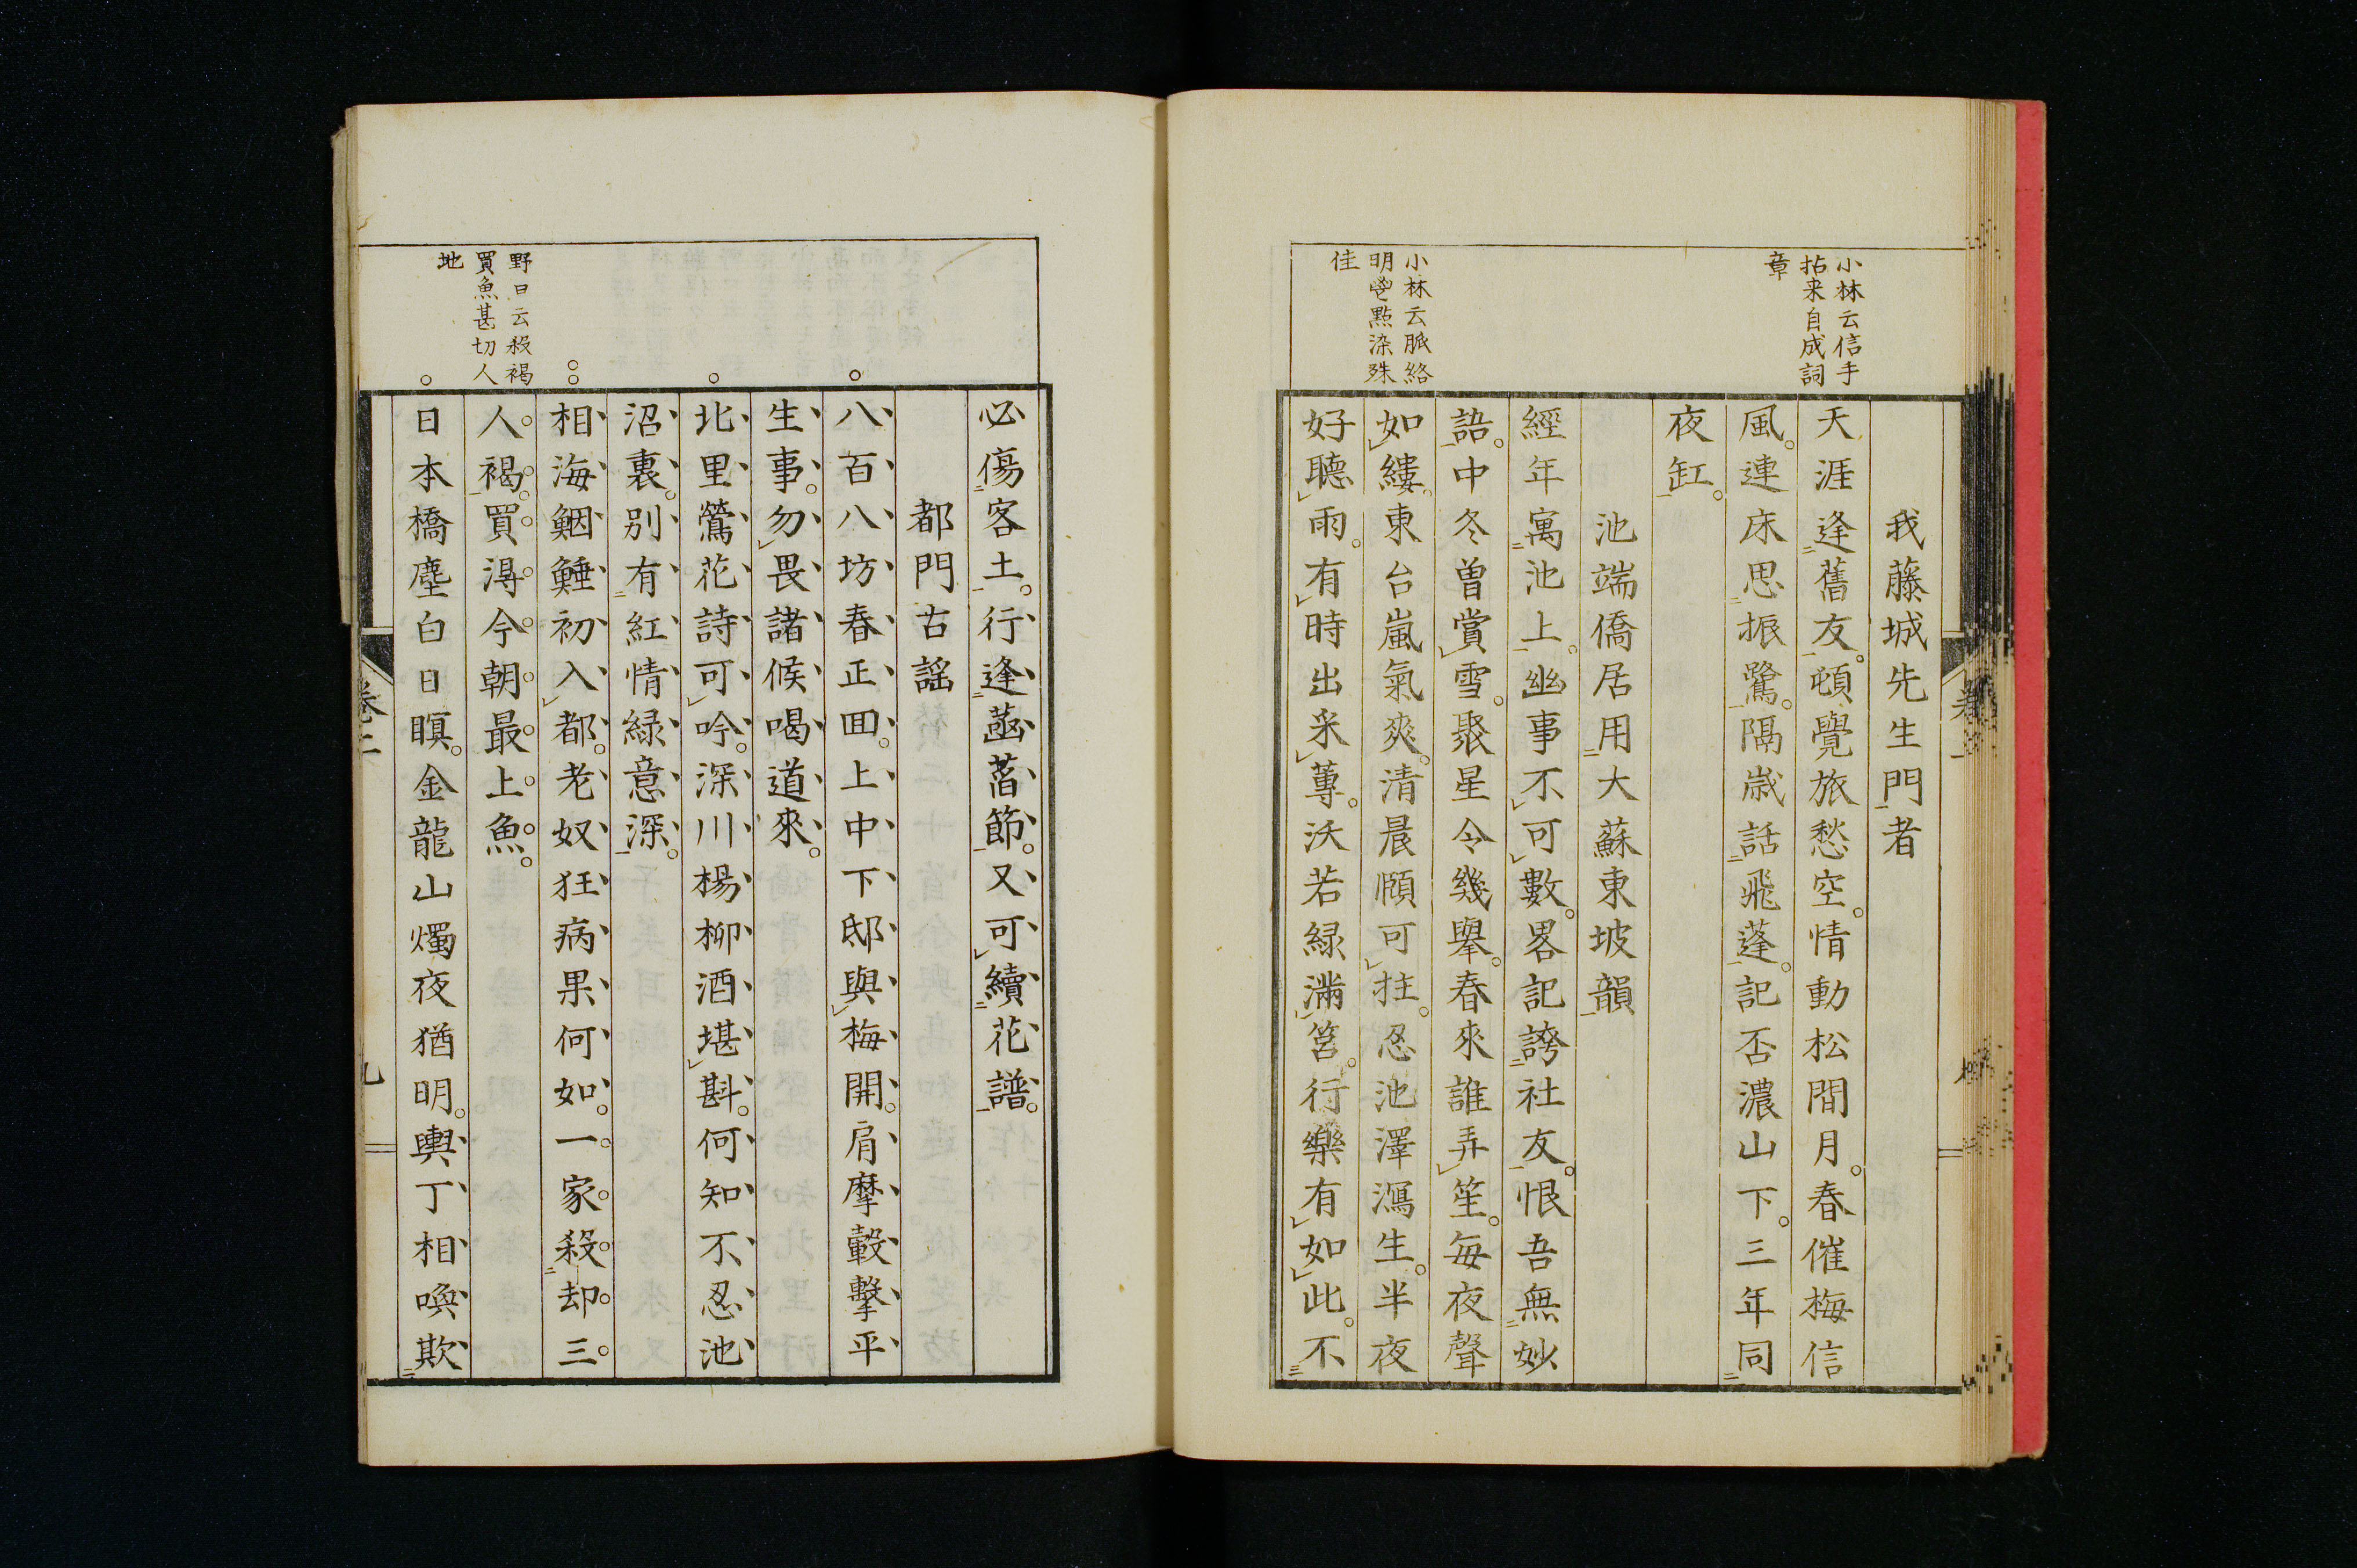 小林云信手
拈来自成詞
章
小林云脈絡
明鬯點染殊
佳
我藤城先生門者
天涯逢舊友。頓覺旅愁空。情動松間月。春催梅信
風。連床思振鷺。隔歳話飛蓬。記否濃山下。三年同
夜缸。
池端僑居用大蘇東坡韻
經年寓池上。幽事不可數。畧記誇社友。恨吾無妙
語。中冬曽賞雪。聚星令幾舉。春來誰弄笙。毎夜聲
如縷。東台嵐氣爽。清晨頤可拄。忍池澤瀉生。半夜
好聽雨。有時出采蓴。沃若緑滿筥。行樂有如此。不
必傷客土。行逢菡萏節。又可續花譜。
都門古謡
八百八坊春正囬。上中下邸與梅開。肩摩轂擊平
生事。勿畏諸候喝道來。
北里鶯花詩可吟。深川楊柳酒堪斟。何知不忍池
沼裏。別有紅情緑意深。
野曰云殺褐
買魚甚切人
地
相海鮰鯂初入都。老奴狂病果何如。一家殺却三
人褐。買淂今朝最上魚。
日本橋塵白日暝。金龍山燭夜猶明。輿丁相喚欺
卷二
九